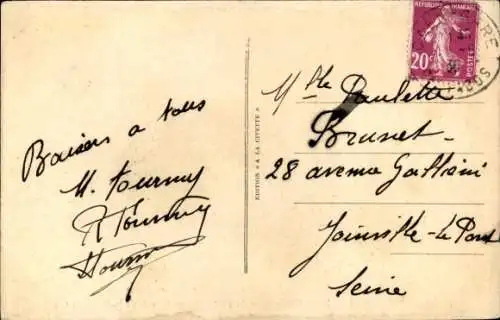 RÉPUBLIQUE FRANÇAISE
20c
POSTES
Baisers a tous
M. Tournuy
R Tournuy
Tournuy
EDITION "A LA CIVETTE"
Mlle Paulette
Brunet
28 avenue Galliéni
Joinville-le-Pont
Seine